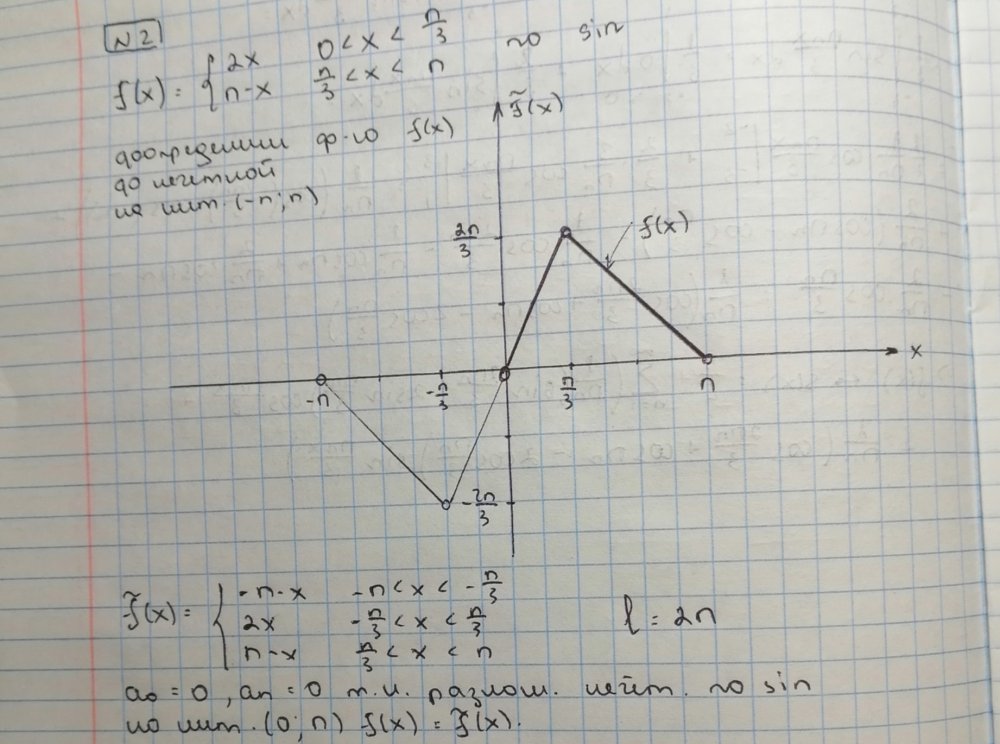 №2
f(x) = { 2x 0 < x < π/3 по sin
π-x π/3 < x < π
доопределим ф-ю f(x)
до нечетной
на инт. (-π; π)
f̃(x)
2π/3
f(x)
x
-π -π/3 0 π/3 π
-2π/3
f̃(x) = { -π-x -π < x < -π/3
2x -π/3 < x < π/3
π-x π/3 < x < π
l = 2π
a₀ = 0, aₙ = 0 т.к. разлож. нечет. по sin
на инт. (0; π) f(x) = f̃(x).